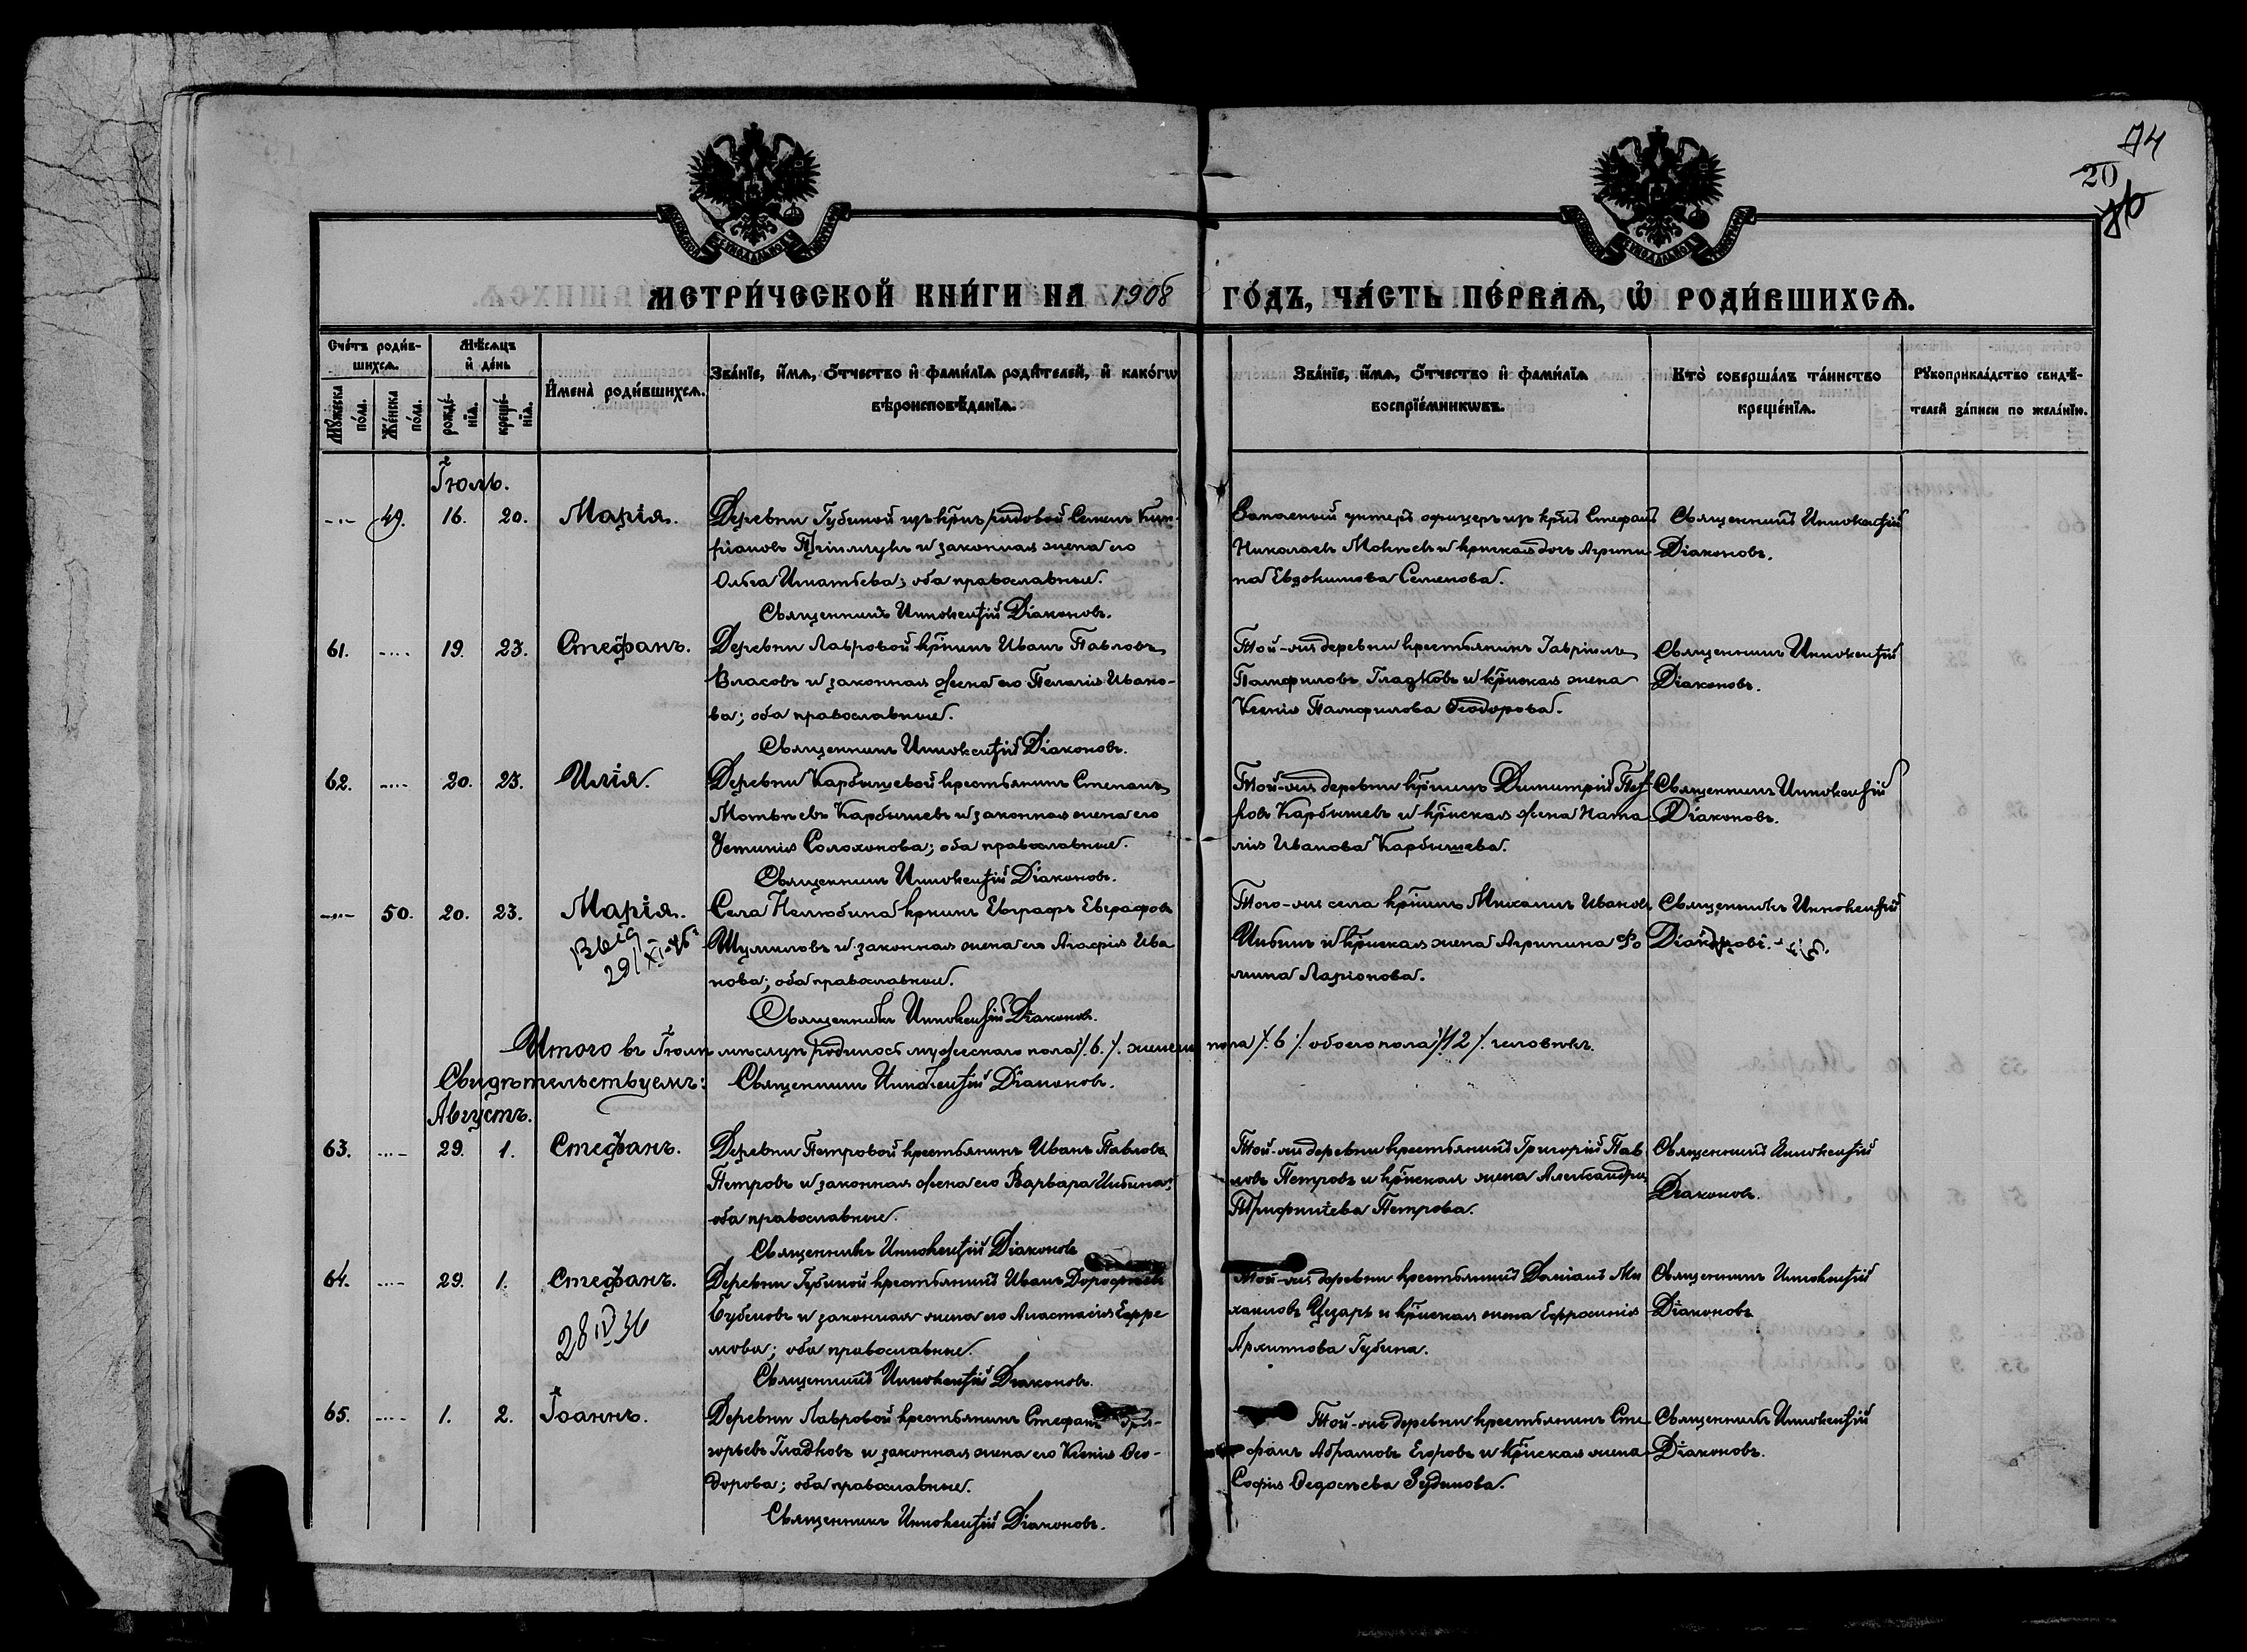 74
20
МЕТРИ́ЧЕСКОЙ КНИ́ГИ НА 1908 ГО́ДЪ, ЧА́СТЬ ПЕ́РВАѦ, Ѡ РОДИ́ВШИХСѦ.
Сче́тъ роди́в-
шихсѧ.
Мꙋ́жеска по́ла.
Же́нска по́ла.
Мѣ́сѧцъ
и҆ де́нь
рожде́-
нїѧ.
креще́-
нїѧ.
И҆мена̀ роди́вшихсѧ.
Зва́нїе, и҆́мѧ, ѻ҆́тчество и҆ фами́лїѧ роди́телей, и҆ како́гѡ
вѣроисповѣ́данїѧ.
Зва́нїе, и҆́мѧ, ѻ҆́тчество и҆ фами́лїѧ
воспрїе́мникѡвъ.
Кто̀ соверша́лъ та́инство
креще́нїѧ.
Рꙋкоприкла́дство свидѣ́-
телей за́писи по жела́нїю.
Іюль.
49. 16. 20. Марія.
Деревни Губиной изъ крнъ рядовой Семенъ Кип-
ріановъ и законная жена его
Ольга Игнатьева; оба православные.
Священникъ Иннокентій Діаконовъ.
Запасный унтеръ офицеръ изъ крнъ Стефанъ
Николаевъ и крнская дочь Агрипи
на Евдокимова Семенова.
Священникъ Иннокентій
Діаконовъ.
61. 19. 23. Стефанъ.
Деревни Лавровой крнинъ Иванъ Павловъ
Власовъ и законная жена его Пелагія Ивано-
ва; оба православные.
Священникъ Иннокентій Діаконовъ.
Той-же деревни крестьянинъ Гавріилъ
Памфиловъ Гладковъ и крнская жена
Ксенія Памфилова Ѳеодорова.
Священникъ Иннокентій
Діаконовъ.
62. 20. 23. Илія.
Деревни Карбышевой крестьянинъ Степанъ
Матвѣевъ Карбышевъ и законная жена его
Устинія Солохонова; оба православные.
Священникъ Иннокентій Діаконовъ.
Той-же деревни крнинъ Димитрій Пет
ровъ Карбышевъ и крнская жена Ната
лія Иванова Карбышева.
Священникъ Иннокентій
Діаконовъ.
50. 20. 23. Марія.
29/XI-46
Села Нелюбина крнинъ Евграфъ Евграфовъ
Шумиловъ и законная жена его Агафія Ива
нова; оба православные.
Священникъ Иннокентій Діаконовъ.
Того-же села крнинъ Михаилъ Ивановъ
Чибинъ и крнская жена Агрипина Ѳо
мина Ларіонова.
Священникъ Иннокентій
Діаконовъ.
Итого въ Іюлѣ мѣсяцѣ родилось мужескаго пола /.6./. женска пола /.6/. обоего пола /.12/. человѣкъ.
Свидѣтельствуемъ: Священникъ Иннокентій Діаконовъ.
Августъ.
63. 29. 1. Стефанъ.
Деревни Петровой крестьянинъ Иванъ Павловъ
Петровъ и законная жена его Варвара Чибина;
оба православные.
Священникъ Иннокентій Діаконовъ
Той-же деревни крестьянинъ Григорій Пав
ловъ Петровъ и крнская жена Александра
Петрова.
Священникъ Иннокентій
Діаконовъ.
64. 29. 1. Стефанъ.
28 IV 36
Деревни Губиной крестьянинъ Иванъ Дорофеевъ
Бубеновъ и законная жена его Анастасія Ефре
мова; оба православные.
Священникъ Иннокентій Діаконовъ.
Той-же деревни крестьянинъ Даміанъ Ми
хаиловъ Цезарь и крнская жена Ефросинія
Архипова Губина.
Священникъ Иннокентій
Діаконовъ
65. 1. 2. Іоаннъ.
Деревни Лавровой крестьянинъ Стефанъ Гри-
горьевъ Гладковъ и законная жена его Ксенія Ѳео-
дорова; оба православные.
Священникъ Иннокентій Діаконовъ.
Той-же деревни крестьянинъ Сте
фанъ Абрамовъ Егоровъ и крнская жена
Софія Ѳедосѣева Зуденова.
Священникъ Иннокентій
Діаконовъ.